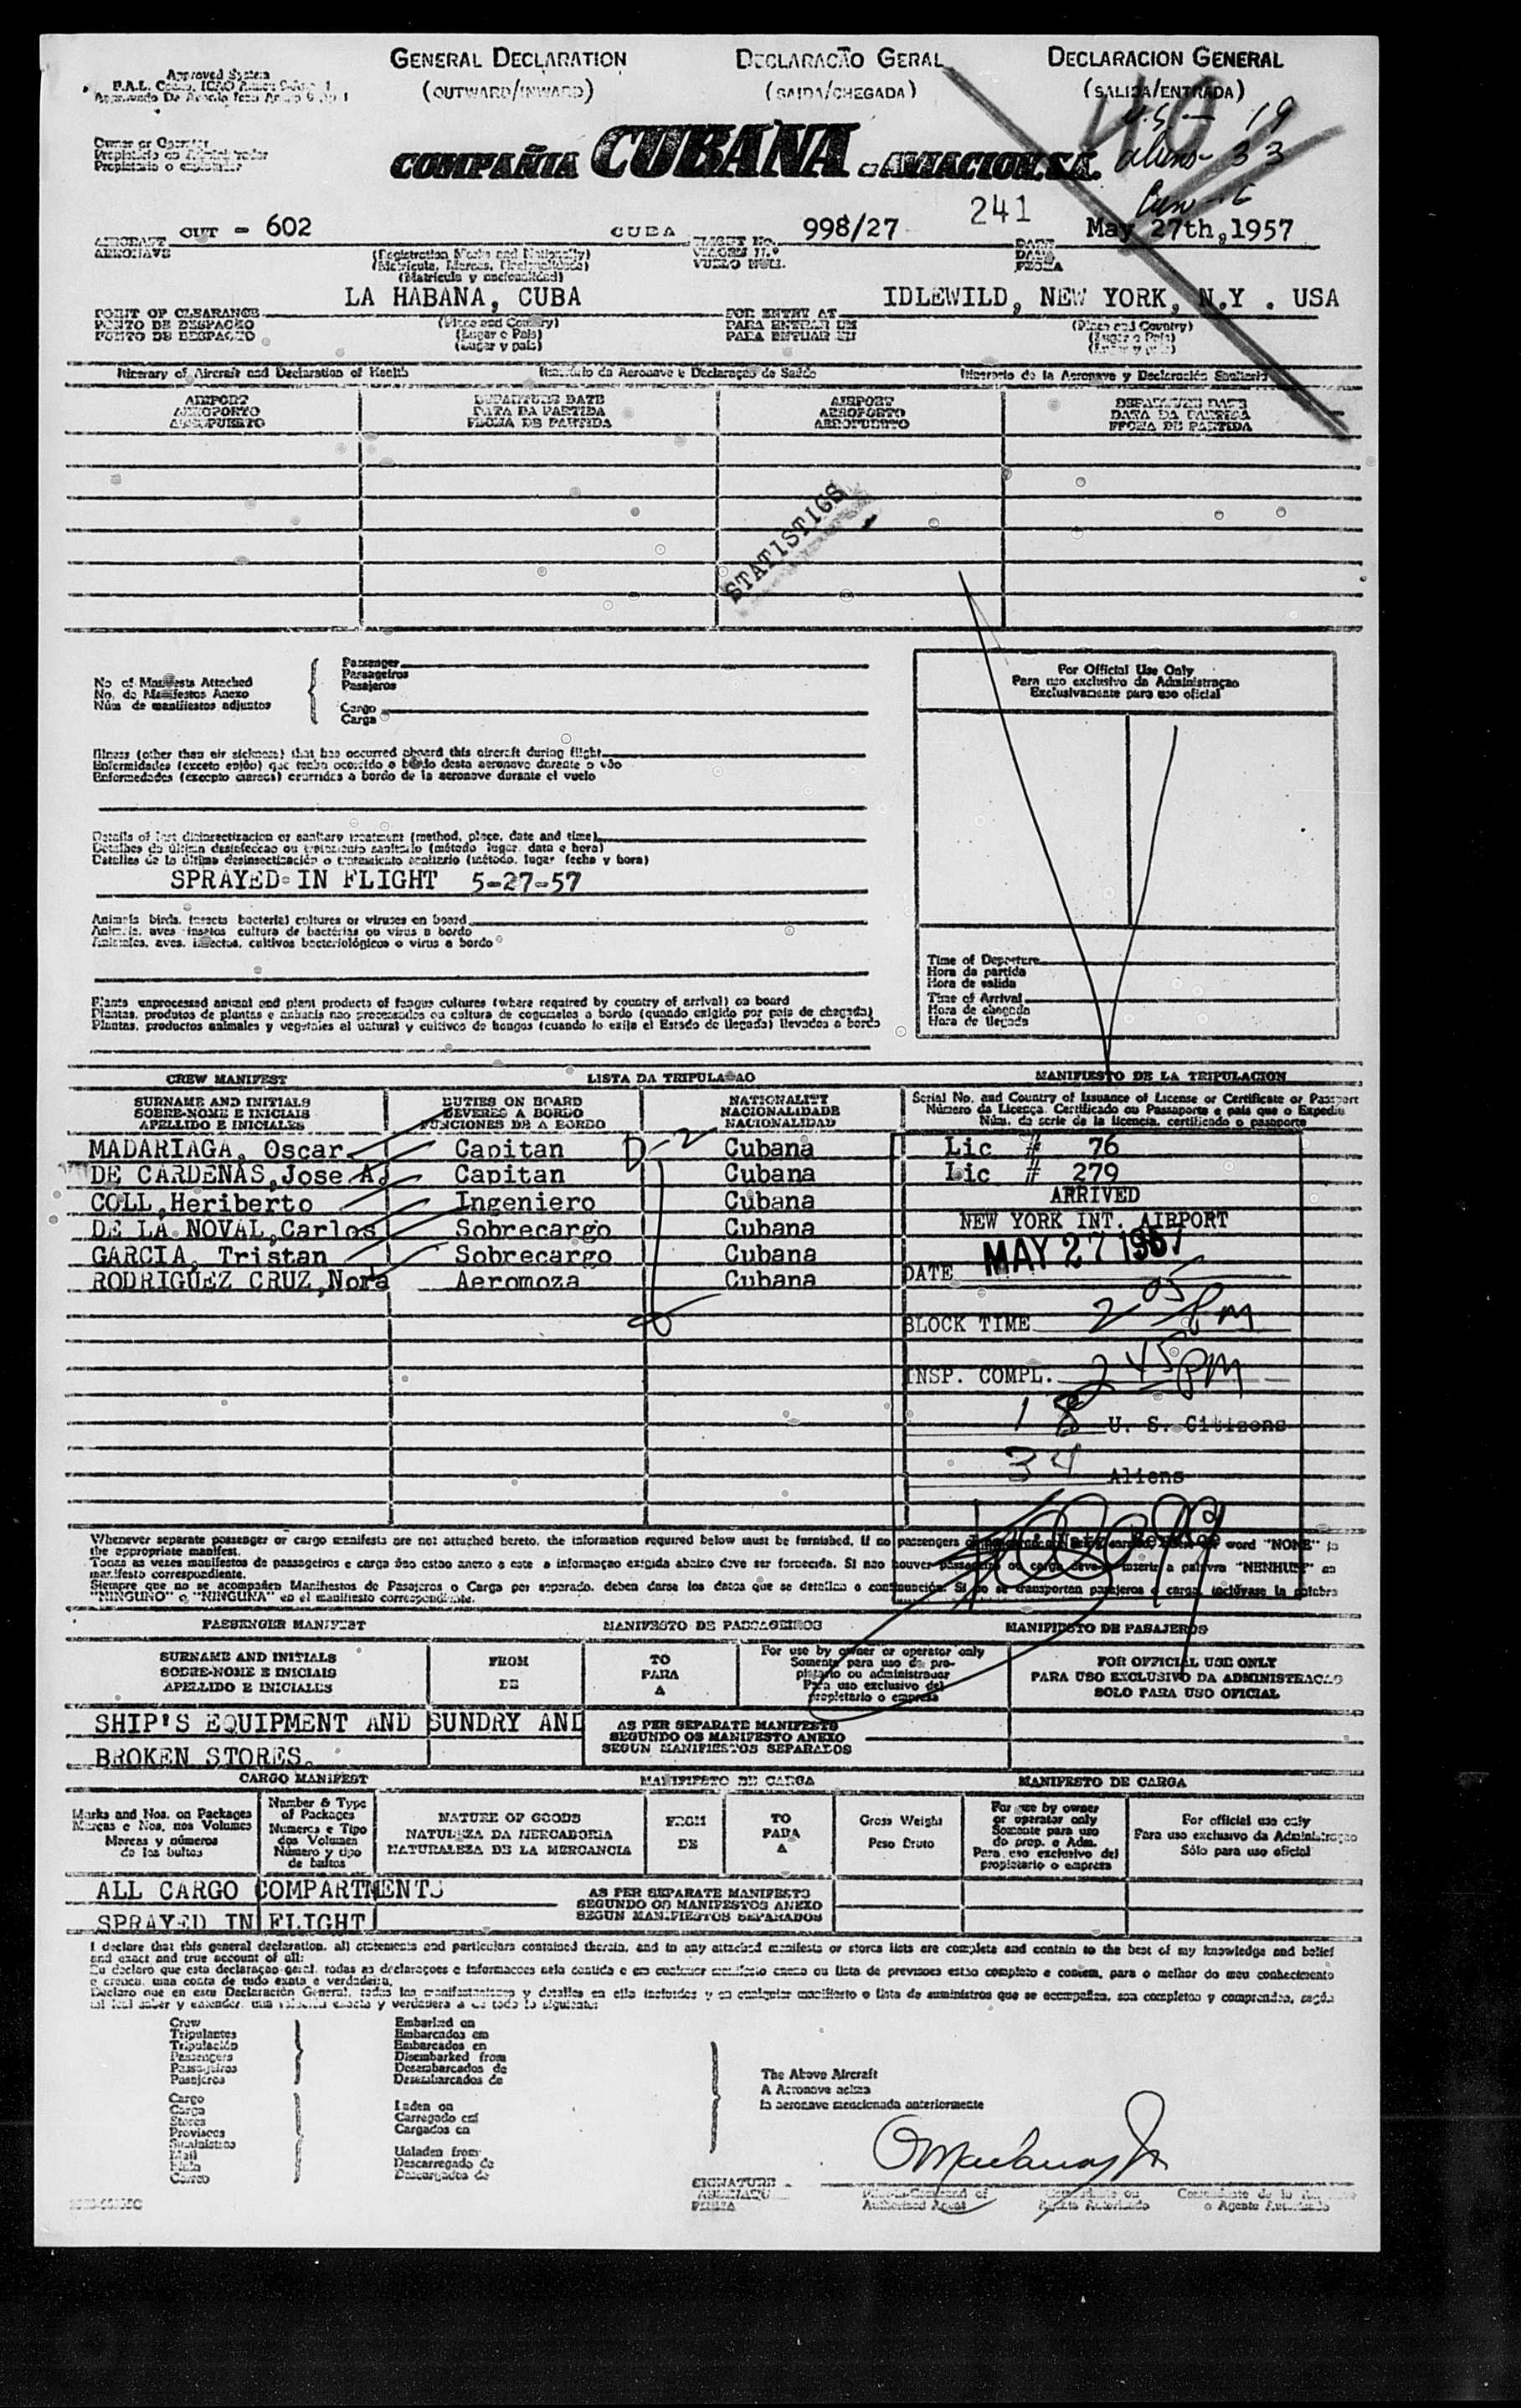 GENERAL DECLARATION
(OUTWARD/INWARD)
DECLARACÃO GERAL
(SAIDA/CHEGADA)
DECLARACION GENERAL
(SALIDA/ENTRADA)
Approved System
40
U.S — 19
aliens - 33
Owner or Operator
Propietario o
COMPAÑIA CUBANA DE AVIACION, S.A.
241
AIRCRAFT CUT - 602 CUBA
AERONAVE
(Registration Marks and Nationality)
(Matricula y nacionalidad)
FLIGHT No. 998/27
VIAGEM N.º
VUELO NUM.
DATE May 27th,1957
DATA
FECHA
POINT OF CLEARANCE LA HABANA, CUBA
PONTO DE DESPACHO
PUNTO DE DESPACHO
(Place and Country)
(Lugar o Pais)
(Lugar y pais)
FOR ENTRY AT IDLEWILD, NEW YORK, N.Y . USA
PARA ENTRAR EM
PARA ENTRAR EN
(Place and Country)
(Lugar o Pais)
(Lugar y pais)
Itinerary of Aircraft and Declaration of Health
Itinerario da Aeronave e Declaraçao de Saúde
Itinerario de la Aeronave y Declaración Sanitaria
AIRPORT
AEROPORTO
AEROPUERTO
DEPARTURE DATE
DATA DA PARTIDA
FECHA DE PARTIDA
AIRPORT
AEROPORTO
AEROPUERTO
DEPARTURE DATE
DATA DA PARTIDA
FECHA DE PARTIDA
STATISTICS
No of Manifests Attached
No. do Manifestos Anexo
Núm de manifiestos adjuntos
Passenger
Passageiros
Pasajeros
Cargo
Carga
For Official Use Only
Para uso exclusivo da Administraçao
Exclusivamente para uso oficial
Illness (other than air sickness) that has occurred aboard this aircraft during flight
Enfermidades (exceto enjôo) que tenha ocorrido a bordo desta aeronave durante o vôo
Enfermedades (excepto mareos) ocurridas a bordo de la aeronave durante el vuelo
Details of last disinsectizacion or sanitary treatment (method, place, date and time)
Detalhes da última desinfeccao ou tratamento sanitario (método lugar, data e hora)
Detalles de la última desinsectización o tratamiento sanitario (método, lugar fecha y hora)
SPRAYED IN FLIGHT 5-27-57
Animals birds, insects bacterial cultures or viruses on board
Animais, aves insetos cultura de bactérias ou virus a bordo
Animales, aves, insectos, cultivos bacteriológicos o virus a bordo
Time of Departure
Hora da partida
Hora de salida
Time of Arrival
Hora de chegada
Hora de llegada
Plants unprocessed animal and plant products of fungus cultures (where required by country of arrival) on board
Plantas, produtos de plantas e animais nao processados ou cultura de cogumelos a bordo (quando exigido por pais de chegada)
Plantas, productos animales y vegetales al natural y cultivos de hongos (cuando lo exija el Estado de llegada) llevados a bordo
CREW MANIFEST
LISTA DA TRIPULAÇAO
MANIFIESTO DE LA TRIPULACION
SURNAME AND INITIALS
SOBRE-NOME E INICIAIS
APELLIDO E INICIALES
DUTIES ON BOARD
DEVERES A BORDO
FUNCIONES DE A BORDO
NATIONALITY
NACIONALIDADE
NACIONALIDAD
Serial No. and Country of Issuance of License or Certificate or Passport
Número da Licença, Certificado ou Passaporte e pais que o Expediu
Núm. de serie de la licencia, certificado o pasaporte
MADARIAGA, Oscar Capitan D-2 Cubana Lic # 76
DE CARDENAS,Jose A. Capitan Cubana Lic # 279
COLL,Heriberto Ingeniero Cubana
DE LA NOVAL,Carlos Sobrecargo Cubana
GARCIA, Tristan Sobrecargo Cubana
RODRIGUEZ CRUZ,Nora Aeromoza Cubana
ARRIVED
NEW YORK INT. AIRPORT
DATE MAY 27 1957
BLOCK TIME 2 05 PM
INSP. COMPL. 2 45 PM
18 U. S. Citizens
34 Aliens
Whenever separate passenger or cargo manifests are not attached hereto, the information required below must be furnished, if no passengers word "NONE" in
the appropriate manifest.
Todas as vezes manifestos de passageiros e carga não estao anexo a este a informaçao exigida abaixo deve ser fornecida. Si nao houver passageiro ou carga deve inserir a palavra "NENHUM" no
manifesto correspondiente.
Siempre que no se acompañen Manifiestos de Pasajeros o Carga por separado, deben darse los datos que se detallan a continuación. Si no se transportan pasajeros o carga, inclúyase la palabra
"NINGUNO" o "NINGUNA" en el manifiesto correspondiente.
PASSENGER MANIFEST
MANIFESTO DE PASSAGEIROS
MANIFIESTO DE PASAJEROS
SURNAME AND INITIALS
SOBRE-NOME E INICIAIS
APELLIDO E INICIALES
FROM
DE
TO
PARA
A
For use by owner or operator only
Somente para uso do pro-
pietario ou administrador
Para uso exclusivo del
propietario o empresa
FOR OFFICIAL USE ONLY
PARA USO EXCLUSIVO DA ADMINISTRAÇAO
SOLO PARA USO OFICIAL
SHIP'S EQUIPMENT AND SUNDRY AND
BROKEN STORES.
AS PER SEPARATE MANIFESTS
SEGUNDO OS MANIFESTO ANEXO
SEGUN MANIFIESTOS SEPARADOS
CARGO MANIFEST
MANIFIESTO DE CARGA
MANIFESTO DE CARGA
Marks and Nos. on Packages
Marcas e Nos. nos Volumes
Marcas y números
de los bultos
Number & Type
of Packages
Numeros e Tipo
dos Volumes
Número y tipo
de bultos
NATURE OF GOODS
NATUREZA DA MERCADORIA
NATURALEZA DE LA MERCANCIA
FROM
DE
TO
PARA
A
Gross Weight
Peso Bruto
For use by owner
or operator only
Somente para uso
do prop. e Adm.
Para uso exclusivo del
propietario o empresa
For official use only
Para uso exclusivo da Administraçao
Sólo para uso oficial
ALL CARGO COMPARTMENTS
SPRAYED IN FLIGHT
AS PER SEPARATE MANIFESTO
SEGUNDO OS MANIFESTOS ANEXO
SEGUN MANIFIESTOS SEPARADOS
I declare that this general declaration, all statements and particulars contained therein, and in any attached manifests or stores lists are complete and contain to the best of my knowledge and belief
and exact and true account of all:
Eu declaro que esta declaraçao geral, todas as declaraçoes e informacoes nela contida e em qualquer manifesto anexo ou lista de previsoes estao completo e contem, para o melhor do meu conhecimento
e crenca, una conta de tudo exata e verdadeira.
Declaro que en esta Declaración General, todas las manifestaciones y detalles en ella incluidos y en cualquier manifiesto o lista de suministros que se acompañan, son completos y comprenden, según
mi leal saber y entender, una relación exacta y verdadera de todo lo siguiente:
Crew
Tripulantes
Tripulación
Passengers
Passageiros
Pasajeros
Cargo
Carga
Stores
Provisoes
Suministros
Mail
Mala
Correo
Embarked on
Embarcados em
Embarcados en
Disembarked from
Desembarcados de
Desembarcados de
Laden on
Carregado em
Cargados en
Unladen from
Descarregado de
Descargados de
The Above Aircraft
A Aeronave acima
la aeronave mencionada anteriormente
SIGNATURE
FIRMA
Authorized Agent
Agente Autorizado
o Agente Autorizado